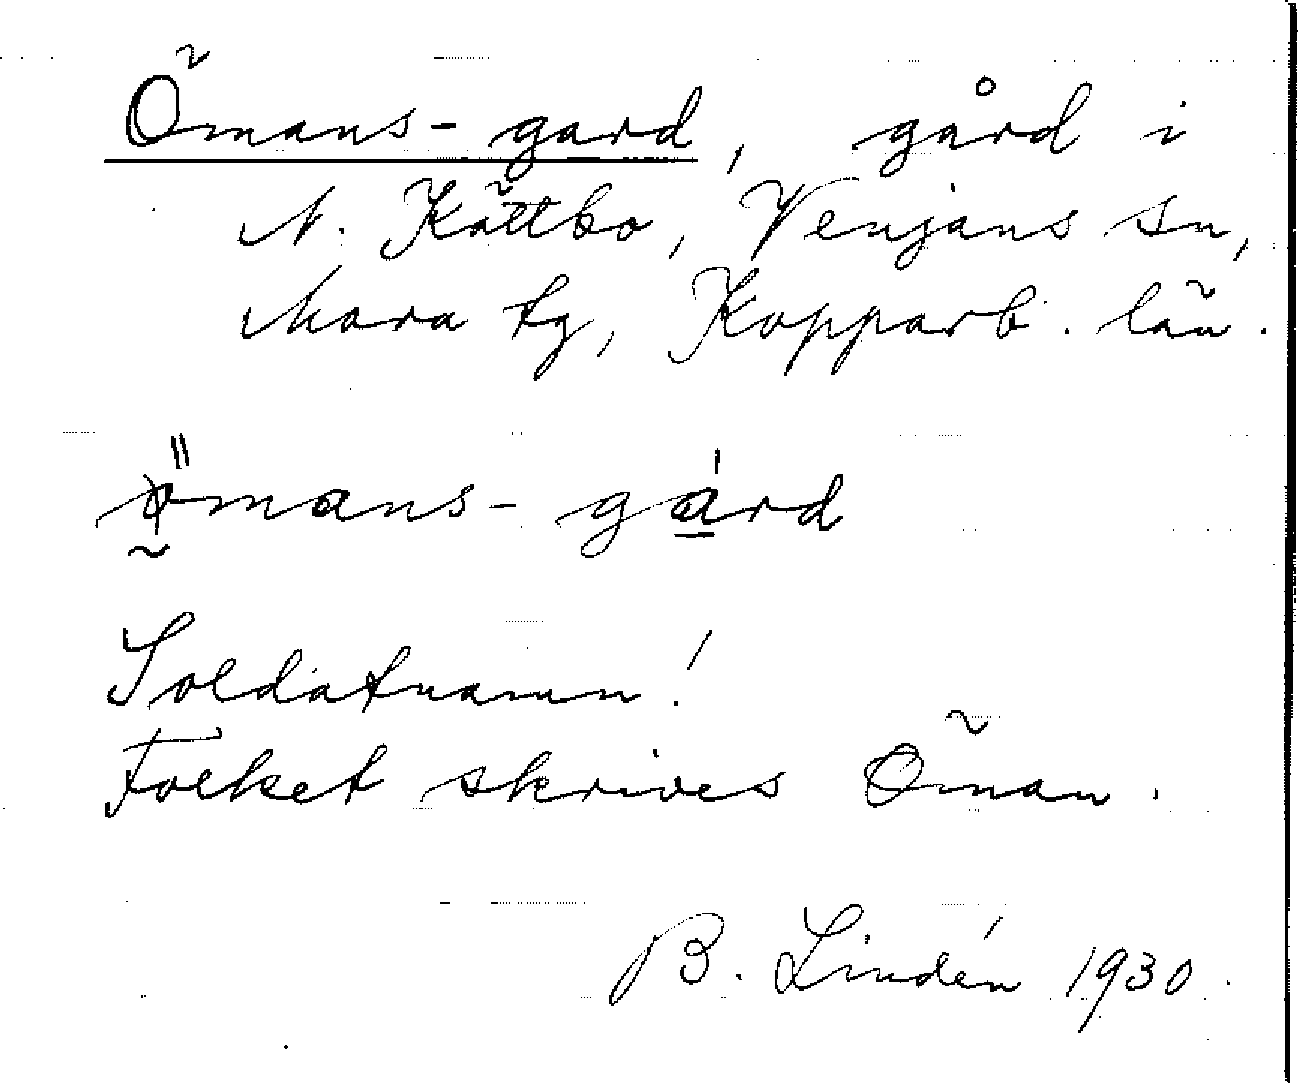 Ömans-gard, gård i
N. Kättbo, Venjans sn,
Mora tg, Kopparb. län.
ömans-gárd
Soldatnamn!
Folket skrives Öman.
B. Lindén 1930.